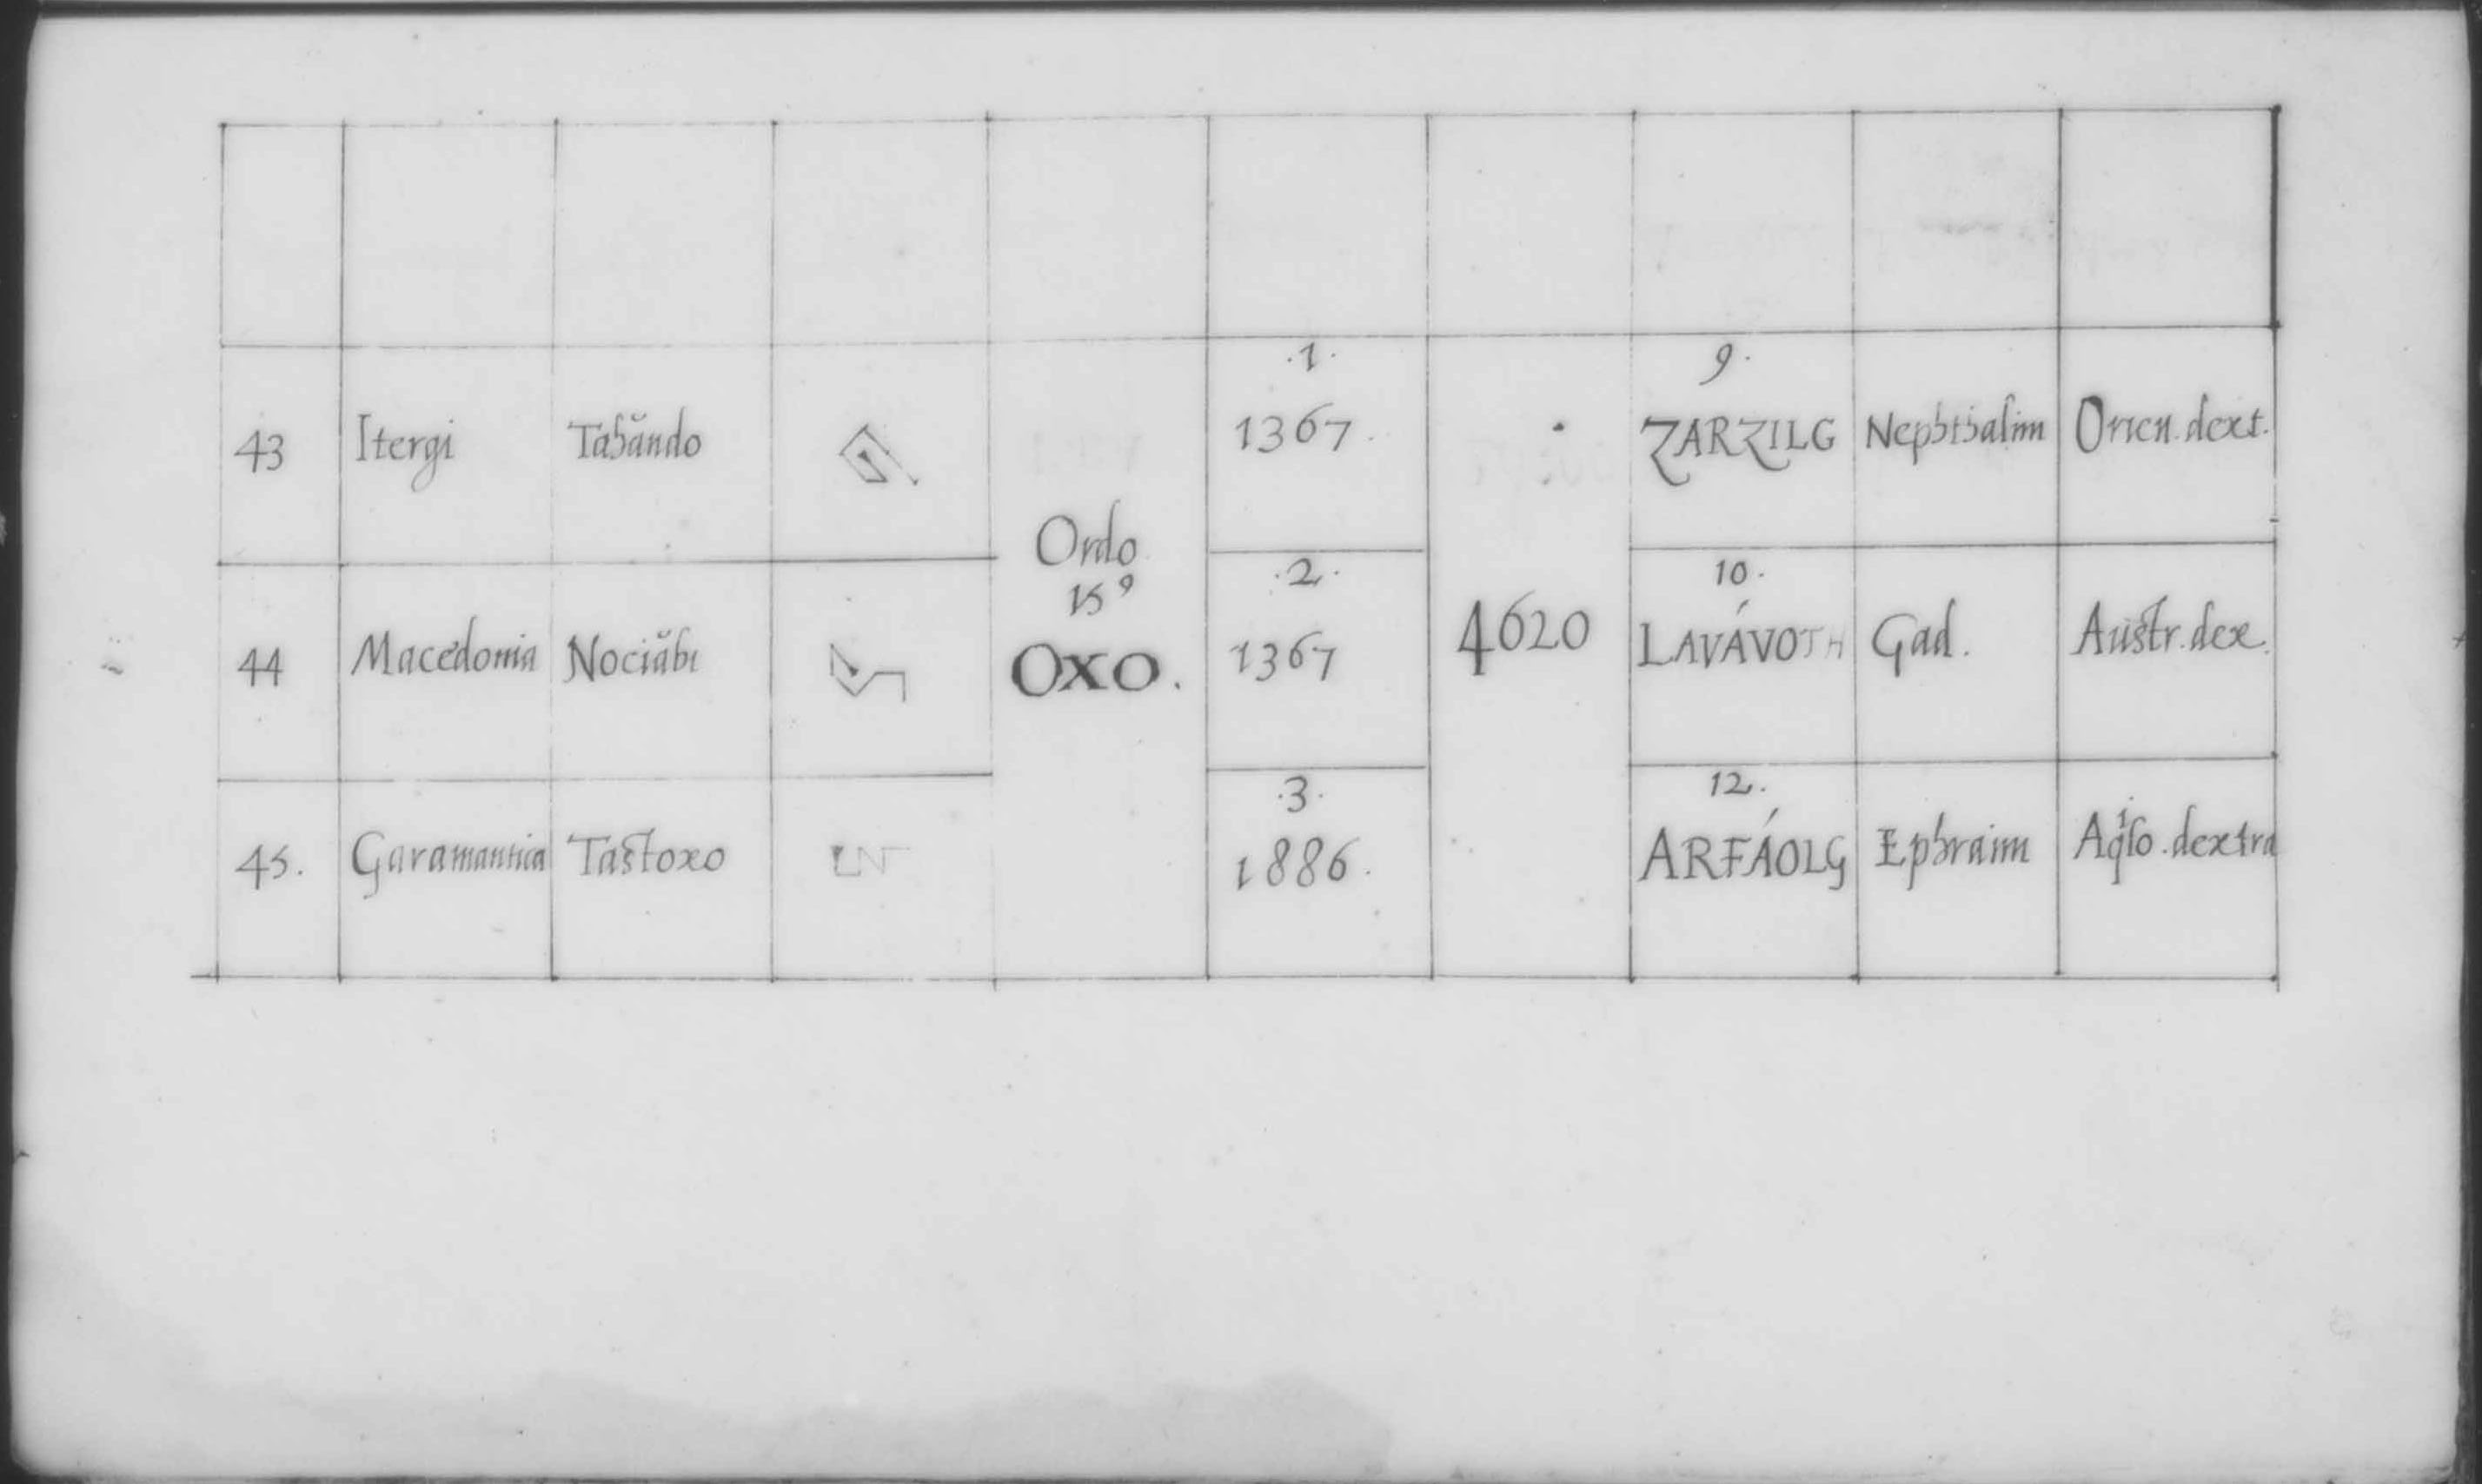 43 Itergi Tahăndo .1. 1367. 9. ZARZILG Nephthalim Orien. dext.
44 Macedonia Nociăbi Ordo 15º OXO. .2. 1367 4620 10. LAVÁVOTH Gad. Austr. dex.
45. Garamantica Tastoxo .3. 1886. 12. ARFÁOLG Ephraim Aqⁱlo. dextra